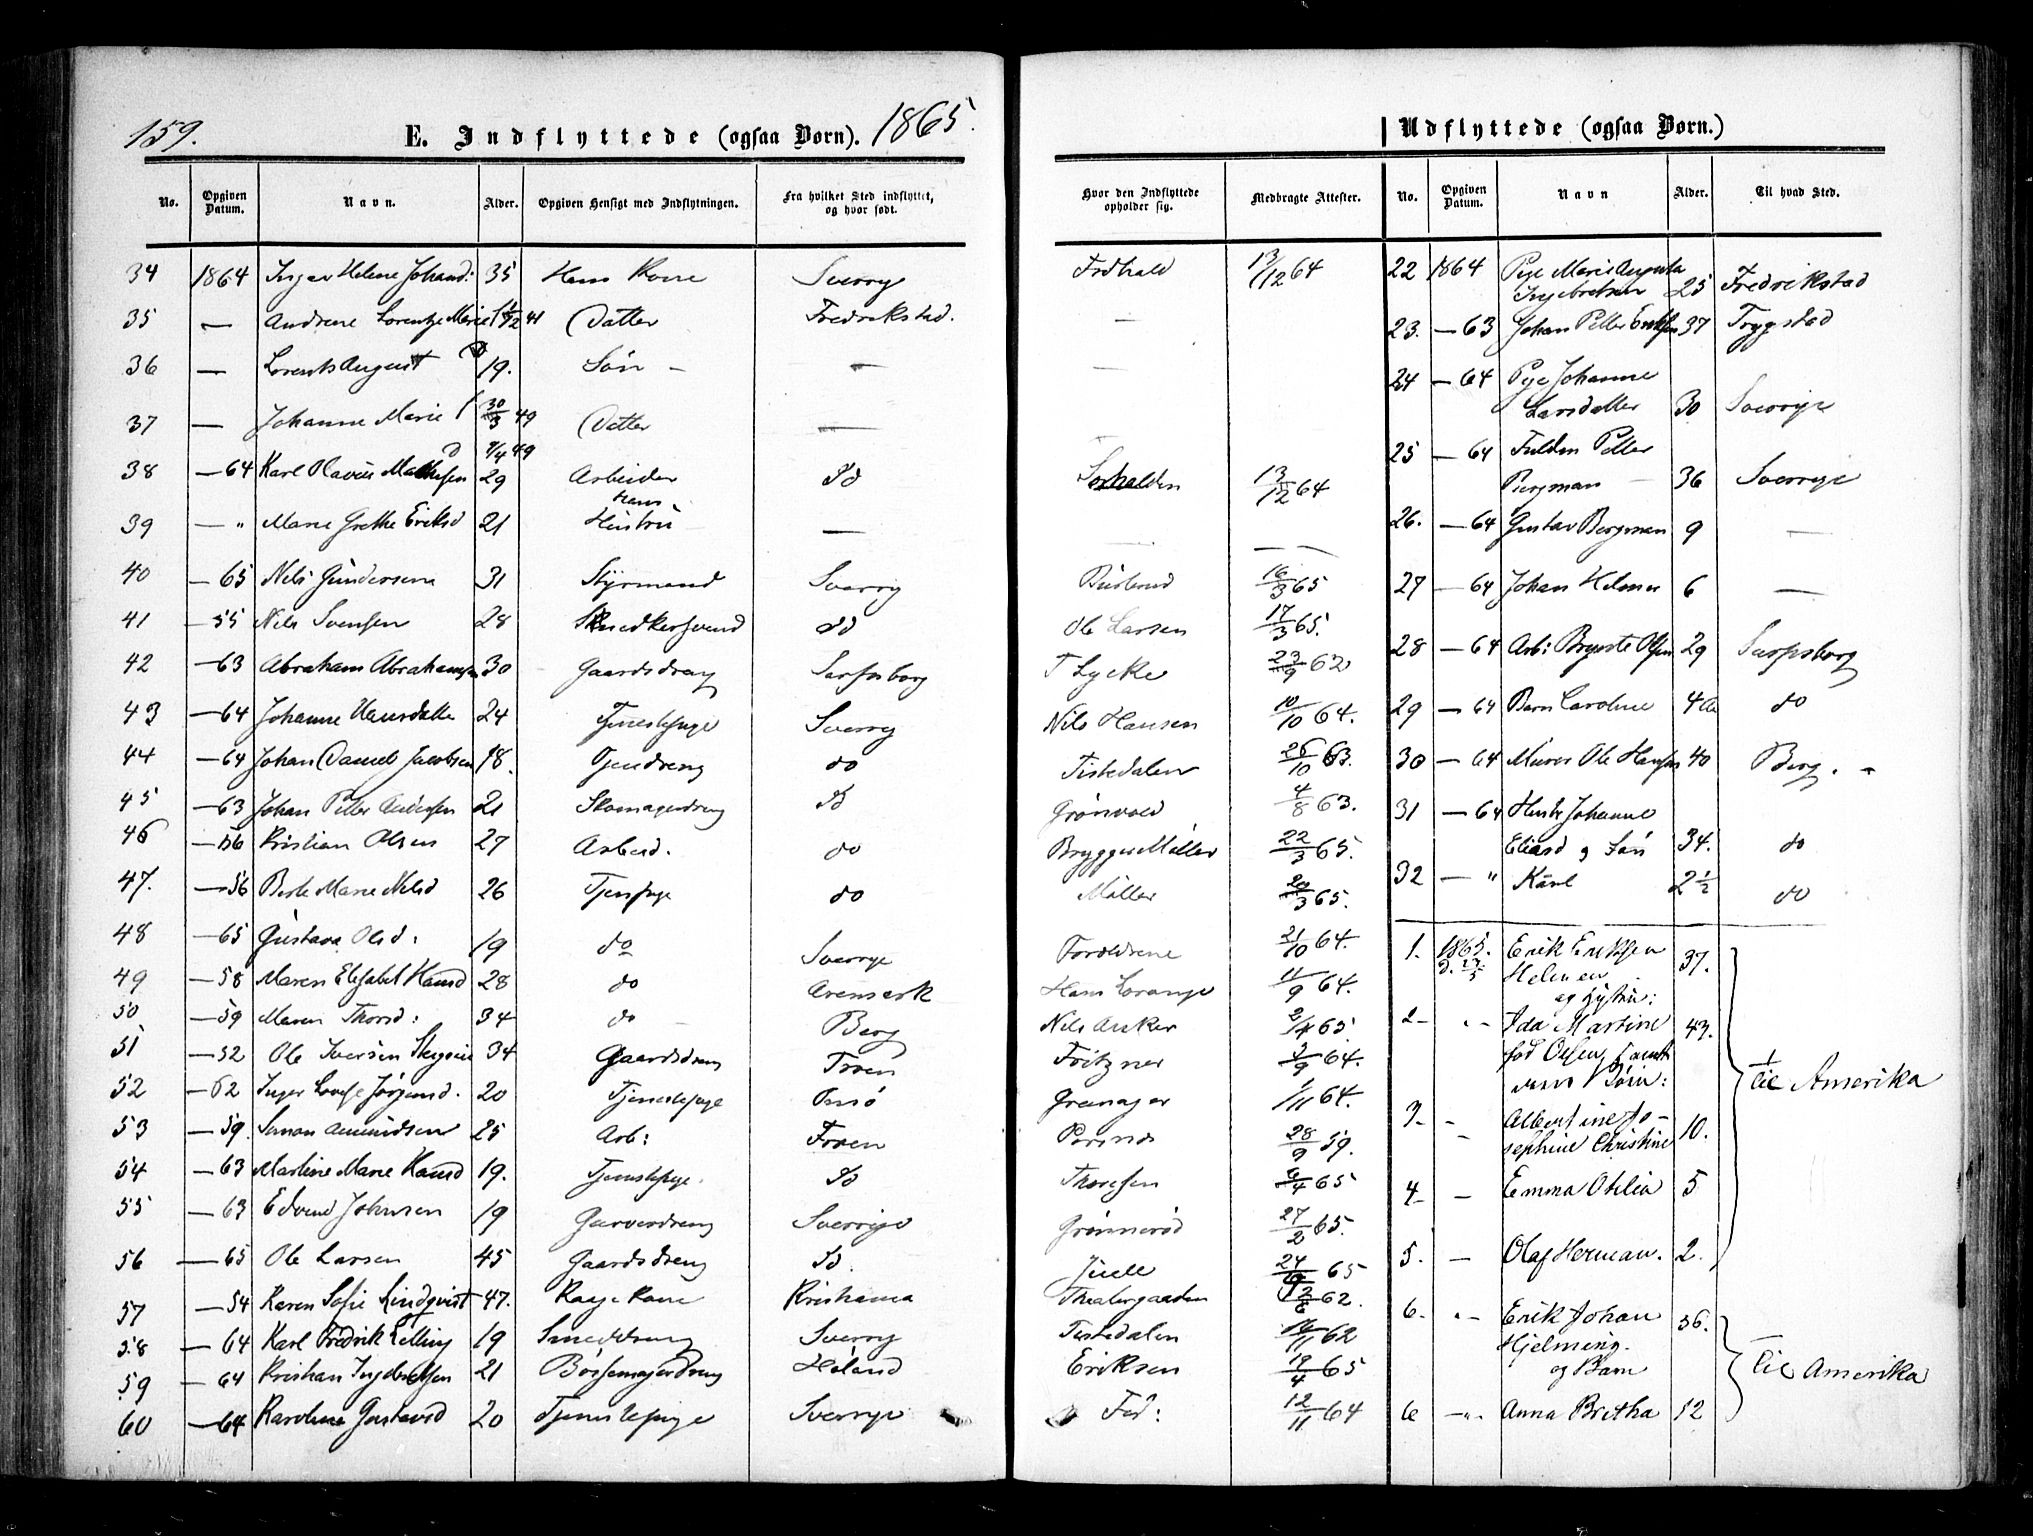 159.
E. Indflyttede (ogsaa Børn). 1865.
No. Opgiven Datum. Navn. Alder. Opgiven Hensigt med Indflytningen. Fra hvilket Sted indflyttet, og hvor født.
Hvor den Indflyttede opholder sig. Medbragte Attester.
34 1864 Inger Helene Johand: 35 Hans Kone Sverrig Frdhald 13/12 64
35 — Andrene Lorentze Marie 41 Datter Fredrikstad. —
36 — Lorents August 19. Søn — — —
37 — Johanne Marie 30/3 49 Datter —
38 — 64 Karl Olavus 29 Arbeider do 13/12 64
39 — " Marie Grethe Eriksd 21 Hans Hustru — — —
40 — 65 Nils Gundersen 31 Styrmand Sverrig 16/3 65
41 — 55 Nils Svensen 28 Snedkersvend do Ole Larsen 17/3 65.
42 — 63 Abraham Abrahamsen 30 Gaardsdreng Sarpsborg T Lycke 23/9 62
43 — 64 Johanne Hansdatter 24 Tjenestepige Sverrig Nils Hansen 10/10 64.
44 — 64 Johan Daniel Jacobsen 18. Tjendreng do Tistedalen 26/10 63.
45 — 63 Johan Petter 21 Skomagerdreng do Grønvold 4/8 63.
46 — 56 Kristian Olsen 27 Arbeid. do Brygger Møller 22/3 65.
47. — 56 Berte Marie Nilsd 26 Tjenpige do Møller 20/3 65.
48 — 65 Gustava Olsd: 19 do Sverrge Forældrene 21/10 64.
49 — 58 Maren Elisabet Hansd 28 do Aremark Hans Lorange 11/9 64.
50 — 59 Maren Thorsd: 34 do — Berg Nils Anker 2/4 65
51 — 52 Ole Iversen 34 Gaardsdreng Froen Fritzner 64.
52 — 62 Inger Lovise Jørgensd. 20 Tjenestepige Onsø Grenager 1/11 64.
53 — 59. Simon Amundsen 25 Arb: Froen 28/9 59.
54 — 63 Martine Marie Hansd 19. Tjenestepige. do Thoresen 65
55 — 63 Edvend Johnsen 19 Garverdreng Sverrige Grønnerød 27/2 65.
56 — 65 Ole Larsen 45 Gaardsdreng do. Juell 65
57 — 54 Karen Sofie Lindqvist 47. Kage Kone Kristiania Theatergaarden 62.
58 — 64 Karl Fredrik 19 Smeddreng Sverrig Tistedalen 16/11 62
59 — 64 Kristian 21 Bøssemagerdreng Høland Eriksen 19/4 65
60 — 64 Karoline Gustavsd 20 Tjenestepige Sverrge Fod: 12/11 64
Udflyttede (ogsaa Børn.)
No. Opgiven Datum. Navn Alder. Til hvad Sted.
22 1864 Pige Marie Augusta
Ingebretsen 25 Fredrikstad
23. — 63 Johan Petter Eriksen 37 Trygstad
24 — 64 Pige Johanne
Larsdatter 30 Sverrige
25 — 64 Petter
36 Sverrige
26. — 64 Gustav Bergman 9 —
27 — 64 Johan Helmer 6 —
28 — 64 Arb: Olsen 29 Sarpsborg
29 — 64 Barn Caroline 4 do
30 — 64 Murer Ole Hansen 40 Berg. —
31 — 64 Hustr Johanne
Eliasd og Søn 34. do
32 — " Karl 2 1/2 do
1. 1865. Erik Eriksen 37.
Helmen
og Hustru:
2 — " — Ida Martine 43.
fød Olsen, samt
deres Børn:
3 — — Albertine Jo-
sephine Christine 10.
til Amerika
4 — — Emma Otilia 5
5. — Olaf Herman. 2.
6. " — Erik Johan 36.
Hjelming.
og Barn
til Amerika
6 — " — Anna Britha 12